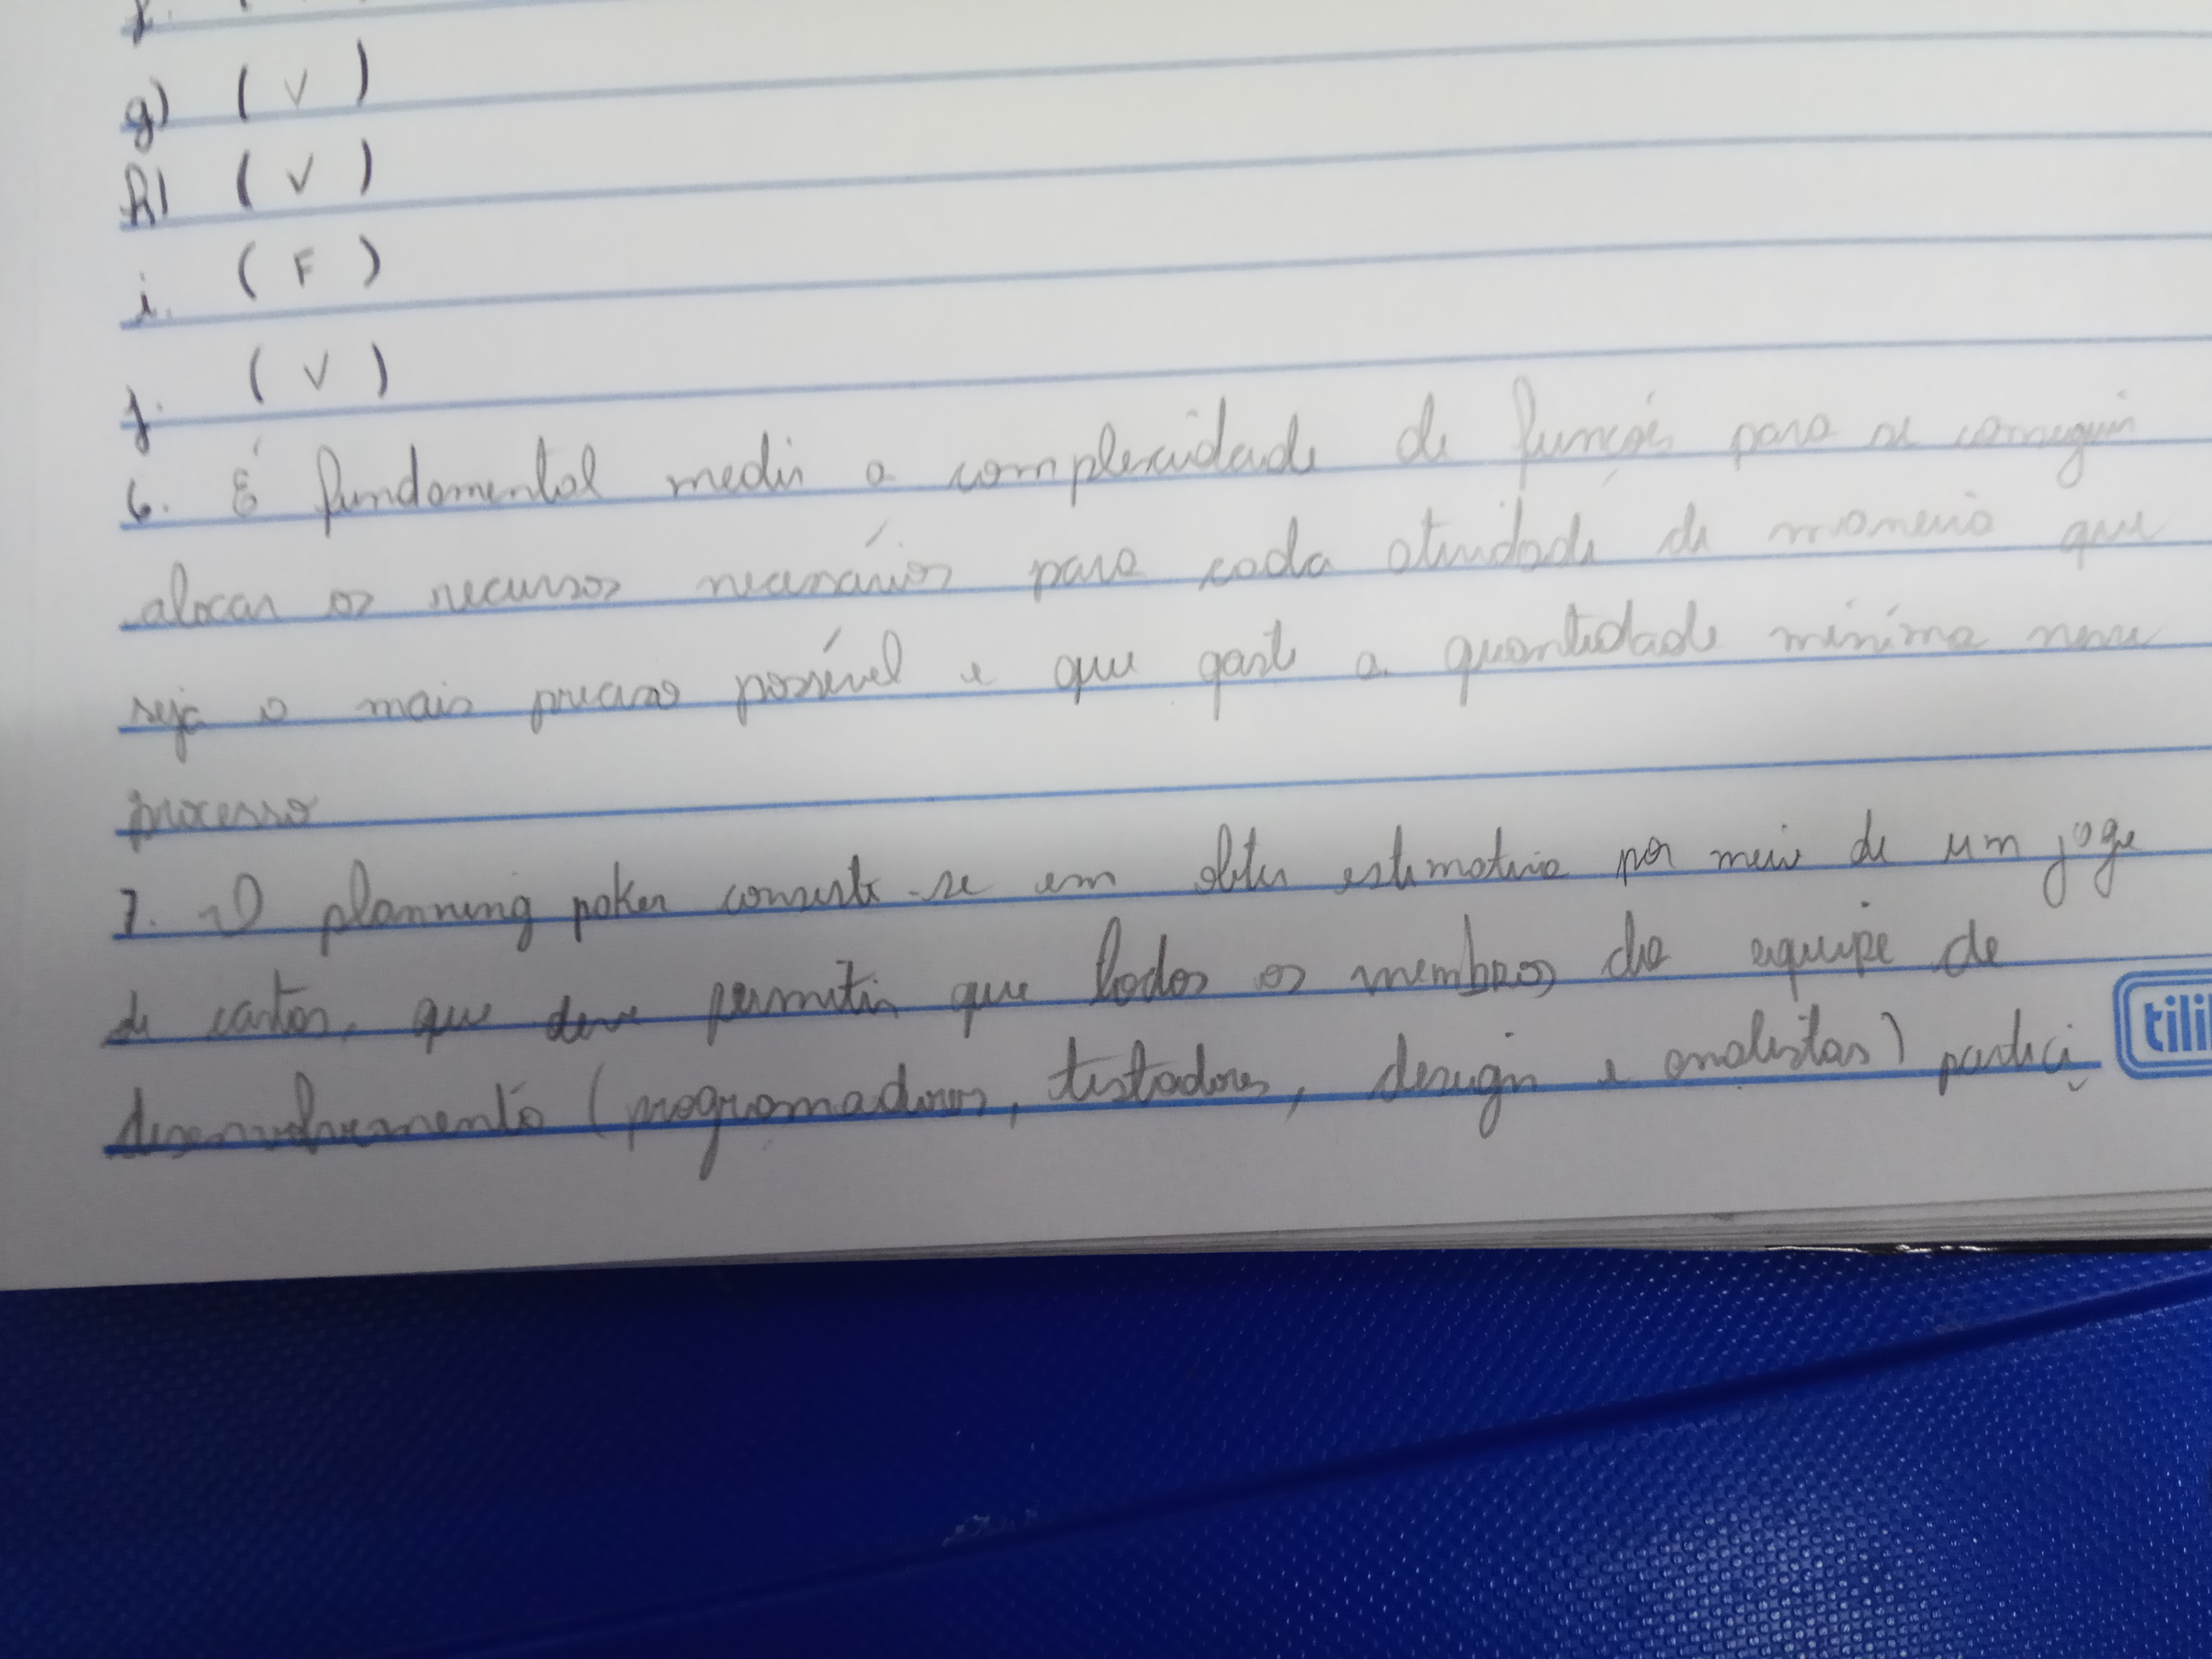 g) ( V )
h) ( V )
i. ( F )
j. ( V )
6. É fundamental medir a complexidade de funções para se conseguir
alocar os recursos necessários para cada atividade de maneira que
seja o mais preciso possível e que gaste a quantidade mínima nesse
processo
7. O planning poker consiste-se em obter estimativa por meio de um jogo
de cartas, que deve permitir que todos os membros da equipe de
desenvolvimento (programadores, testadores, design e analistas) partici
tili